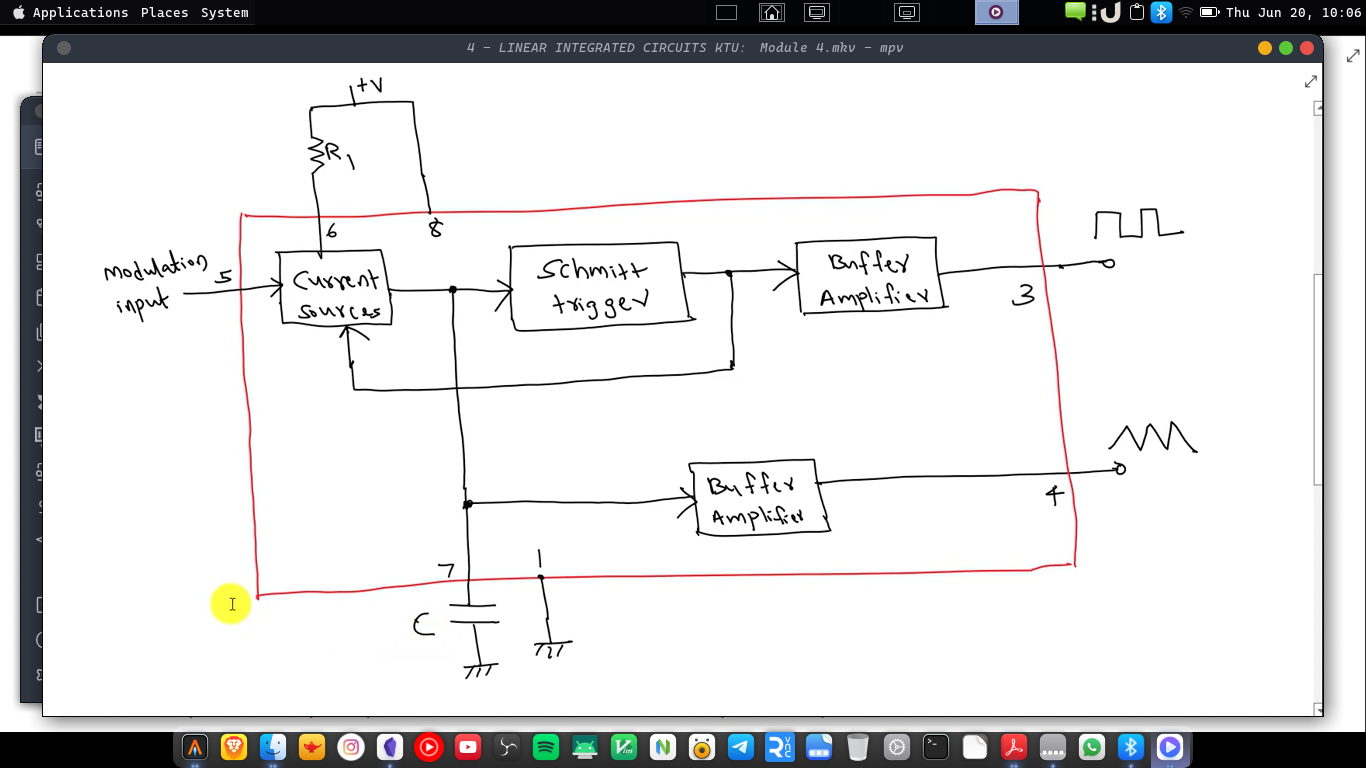 Applications Places System
Thu Jun 20, 10:06
4 - LINEAR INTEGRATED CIRCUITS KTU: Module 4.mkv - mpv
+V
R1
6
8
Modulation
input
5
Current
sources
Schmitt
trigger
Buffer
Amplifier
3
Buffer
Amplifier
4
7
1
C